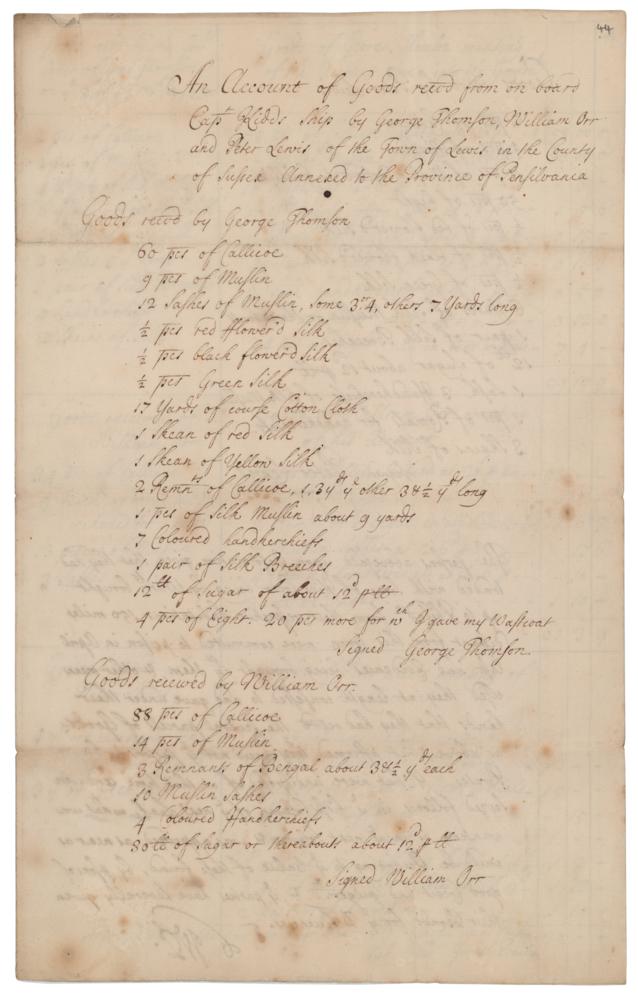 44
An Account of Goods recvd from on board
Capt Kidds Ship by George Thomson, William Orr
and Peter Lewis of the Town of Lewis in the County
of Sussex Annexed to the Province of Pensilvania
Goods recvd by George Thomson
60 pcs of Callicoe
9 pcs of Muslin
12 Sashes of Muslin, some 3 or 4, others 7 Yards long
½ pcs red flower'd Silk
½ pcs black flower'd Silk
½ pcs Green Silk
17 Yards of course Cotton Cloth
1 Skean of red Silk
1 Skean of Yellow Silk
2 Remnts of Callicoe, 1, 3 yds ye other 38½ yds long
1 pcs of Silk Muslin about 9 yards
7 Coloured handkerchiefs
1 pair of Silk Breeches
12 lt of Sugar of about 12d p lt
4 pcs of Eight. 20 pcs more for wch I gave my Wastcoat
Signed George Thomson.
Goods received by William Orr.
88 pcs of Callicoe
14 pcs of Muslin
3 Remnants of Bengal about 38½ yds each
10 Muslin Sashes
4 Coloured Handkerchiefs
30 lt of Sugar or thereabouts about 12d p lt
Signed William Orr